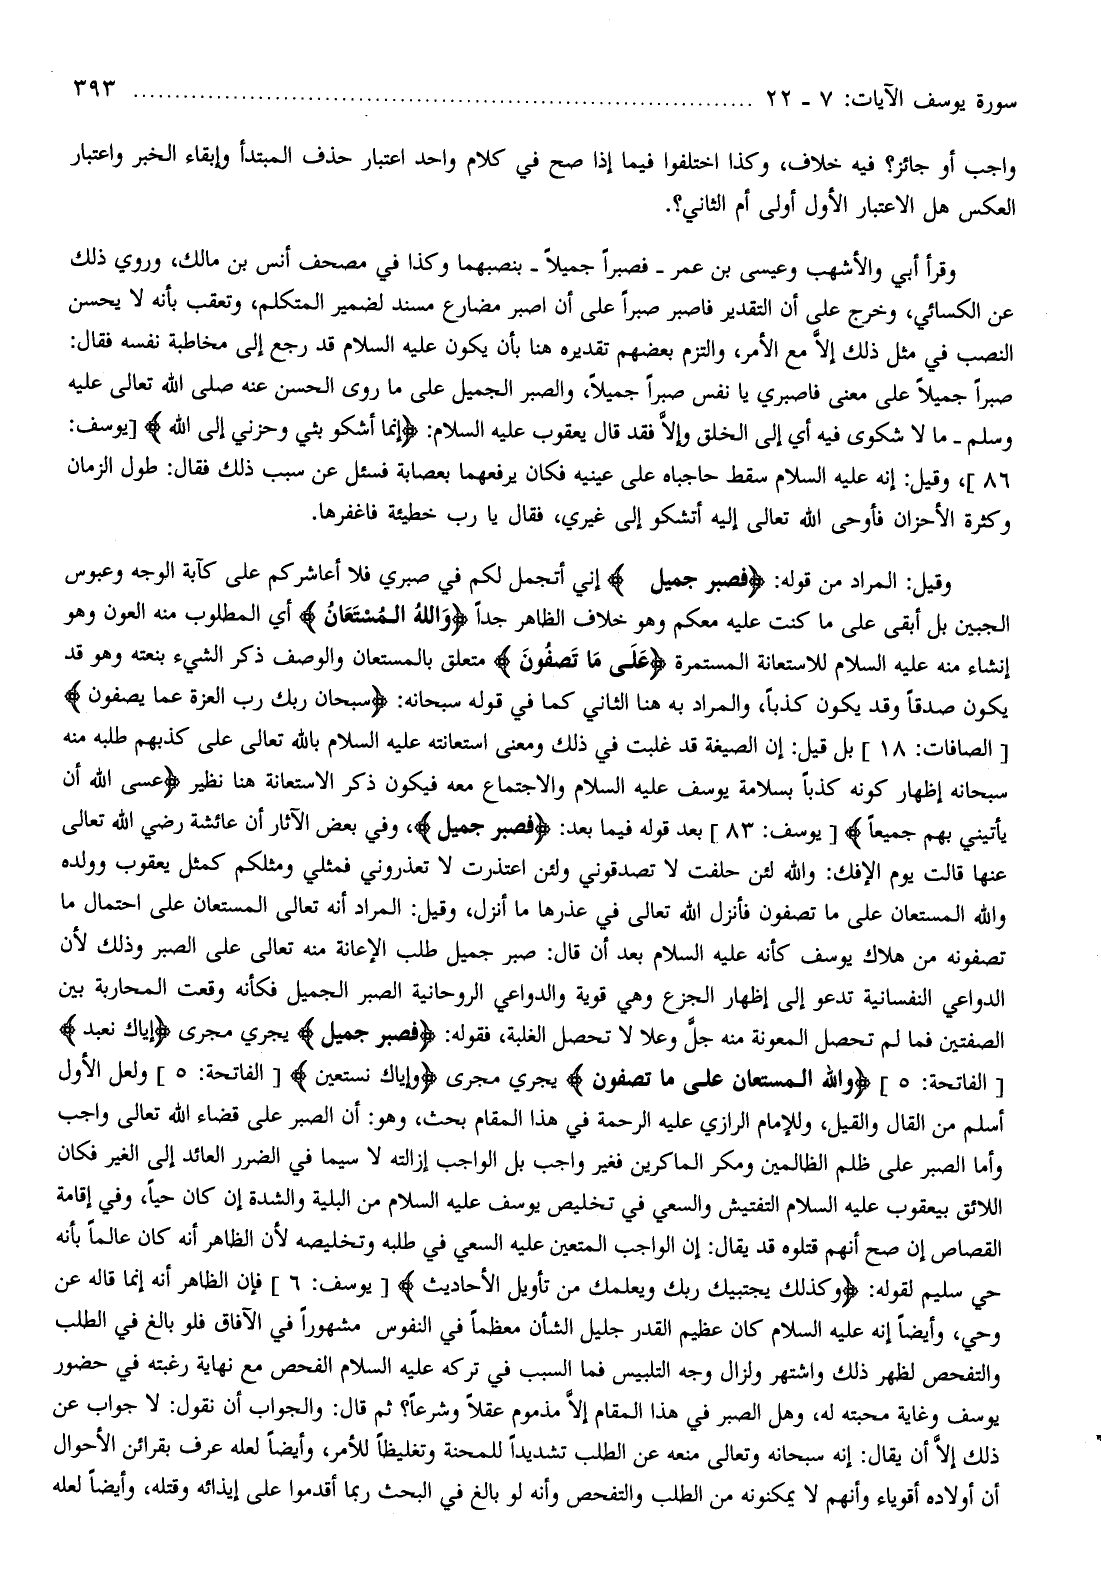 سورة يوسف الآيات: ٧ ـ ٢٢ ........................................................................... ٣٩٣
واجب أو جائز؟ فيه خلاف، وكذا اختلفوا فيما إذا صح في كلام واحد اعتبار حذف المبتدأ وإبقاء الخبر واعتبار
العكس هل الاعتبار الأول أولى أم الثاني؟.
وقرأ أبي والأشهب وعيسى بن عمر ـ فصبراً جميلاً ـ بنصبهما وكذا في مصحف أنس بن مالك، وروي ذلك
عن الكسائي، وخرج على أن التقدير فاصبر صبراً على أن اصبر مضارع مسند لضمير المتكلم، وتعقب بأنه لا يحسن
النصب في مثل ذلك إلاَّ مع الأمر، والتزم بعضهم تقديره هنا بأن يكون عليه السلام قد رجع إلى مخاطبة نفسه فقال:
صبراً جميلاً على معنى فاصبري يا نفس صبراً جميلاً، والصبر الجميل على ما روى الحسن عنه صلى الله تعالى عليه
وسلم ـ ما لا شكوى فيه أي إلى الخلق وإلاَّ فقد قال يعقوب عليه السلام: ﴿إنما أشكو بثي وحزني إلى الله ﴾ [يوسف:
٨٦ ]، وقيل: إنه عليه السلام سقط حاجباه على عينيه فكان يرفعهما بعصابة فسئل عن سبب ذلك فقال: طول الزمان
وكثرة الأحزان فأوحى الله تعالى إليه أتشكو إلى غيري، فقال يا رب خطيئة فاغفرها.
وقيل: المراد من قوله: ﴿فصبر جميل ﴾ إني أتجمل لكم في صبري فلا أعاشركم على كآبة الوجه وعبوس
الجبين بل أبقى على ما كنت عليه معكم وهو خلاف الظاهر جداً ﴿وَاللهُ المُسْتَعَانُ ﴾ أي المطلوب منه العون وهو
إنشاء منه عليه السلام للاستعانة المستمرة ﴿عَلَى مَا تَصِفُونَ ﴾ متعلق بالمستعان والوصف ذكر الشيء بنعته وهو قد
يكون صدقاً وقد يكون كذباً، والمراد به هنا الثاني كما في قوله سبحانه: ﴿سبحان ربك رب العزة عما يصفون ﴾
[ الصافات: ١٨ ] بل قيل: إن الصيغة قد غلبت في ذلك ومعنى استعانته عليه السلام بالله تعالى على كذبهم طلبه منه
سبحانه إظهار كونه كذباً بسلامة يوسف عليه السلام والاجتماع معه فيكون ذكر الاستعانة هنا نظير ﴿عسى الله أن
يأتيني بهم جميعاً ﴾ [ يوسف: ٨٣ ] بعد قوله فيما بعد: ﴿فصبر جميل ﴾، وفي بعض الآثار أن عائشة رضي الله تعالى
عنها قالت يوم الإفك: والله لئن حلفت لا تصدقوني ولئن اعتذرت لا تعذروني فمثلي ومثلكم كمثل يعقوب وولده
والله المستعان على ما تصفون فأنزل الله تعالى في عذرها ما أنزل، وقيل: المراد أنه تعالى المستعان على احتمال ما
تصفونه من هلاك يوسف كأنه عليه السلام بعد أن قال: صبر جميل طلب الإعانة منه تعالى على الصبر وذلك لأن
الدواعي النفسانية تدعو إلى إظهار الجزع وهي قوية والدواعي الروحانية الصبر الجميل فكأنه وقعت المحاربة بين
الصفتين فما لم تحصل المعونة منه جلَّ وعلا لا تحصل الغلبة، فقوله: ﴿فصبر جميل ﴾ يجري مجرى ﴿إياك نعبد ﴾
[ الفاتحة: ٥ ] ﴿والله المستعان على ما تصفون ﴾ يجري مجرى ﴿وإياك نستعين ﴾ [ الفاتحة: ٥ ] ولعل الأول
أسلم من القال والقيل، وللإمام الرازي عليه الرحمة في هذا المقام بحث، وهو: أن الصبر على قضاء الله تعالى واجب
وأما الصبر على ظلم الظالمين ومكر الماكرين فغير واجب بل الواجب إزالته لا سيما في الضرر العائد إلى الغير فكان
اللائق بيعقوب عليه السلام التفتيش والسعي في تخليص يوسف عليه السلام من البلية والشدة إن كان حياً، وفي إقامة
القصاص إن صح أنهم قتلوه قد يقال: إن الواجب المتعين عليه السعي في طلبه وتخليصه لأن الظاهر أنه كان عالماً بأنه
حي سليم لقوله: ﴿وكذلك يجتبيك ربك ويعلمك من تأويل الأحاديث ﴾ [ يوسف: ٦ ] فإن الظاهر أنه إنما قاله عن
وحي، وأيضاً إنه عليه السلام كان عظيم القدر جليل الشأن معظماً في النفوس مشهوراً في الآفاق فلو بالغ في الطلب
والتفحص لظهر ذلك واشتهر ولزال وجه التلبيس فما السبب في تركه عليه السلام الفحص مع نهاية رغبته في حضور
يوسف وغاية محبته له، وهل الصبر في هذا المقام إلاَّ مذموم عقلاً وشرعاً؟ ثم قال: والجواب أن نقول: لا جواب عن
ذلك إلاَّ أن يقال: إنه سبحانه وتعالى منعه عن الطلب تشديداً للمحنة وتغليظاً للأمر، وأيضاً لعله عرف بقرائن الأحوال
أن أولاده أقوياء وأنهم لا يمكنونه من الطلب والتفحص وأنه لو بالغ في البحث ربما أقدموا على إيذائه وقتله، وأيضاً لعله